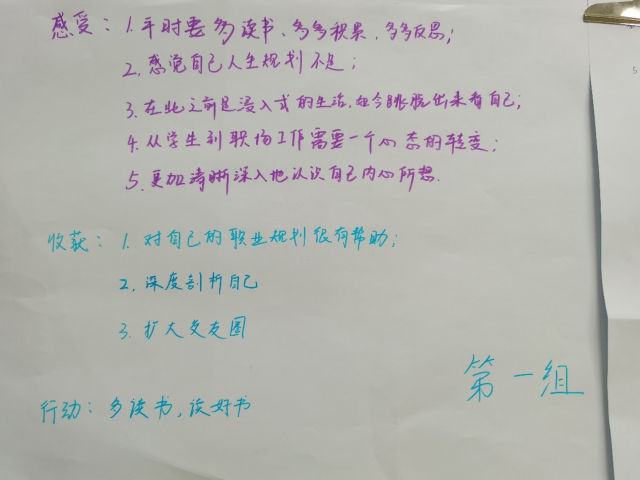 感受：1.平时要多读书、多多积累、多多反思；
2.感觉自己人生规划不足；
3.在此之前是浸入式的生活，如今跳脱出来看自己；
4.从学生到职场工作需要一个心态的转变；
5.更加清晰深入地认识自己内心所想.
收获：1.对自己的职业规划很有帮助；
2.深度剖析自己
3.扩大交友圈
第一组
行动：多读书，读好书